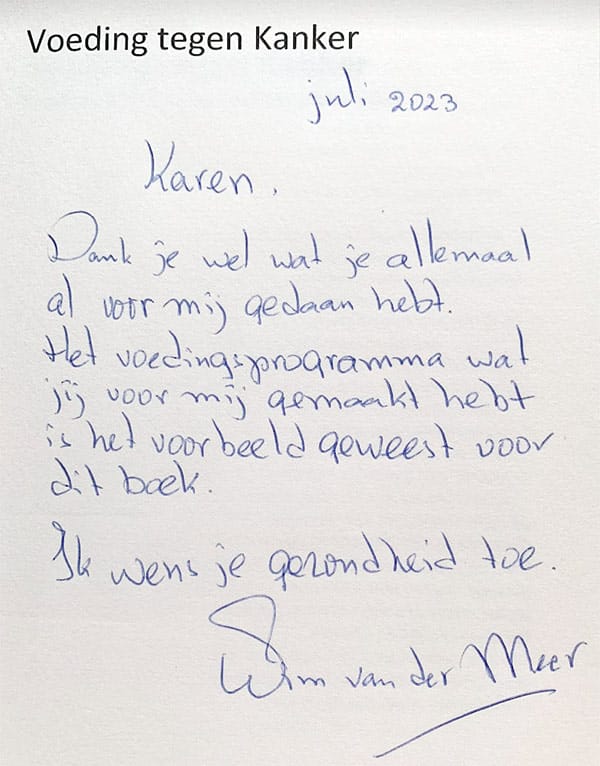 Voeding tegen Kanker
juli 2023
Karen.
Dank je wel wat je allemaal
al voor mij gedaan hebt.
Het voedingsprogramma wat
jij voor mij gemaakt hebt
is het voorbeeld geweest voor
dit boek.
Ik wens je gezondheid toe.
Wim van der Meer